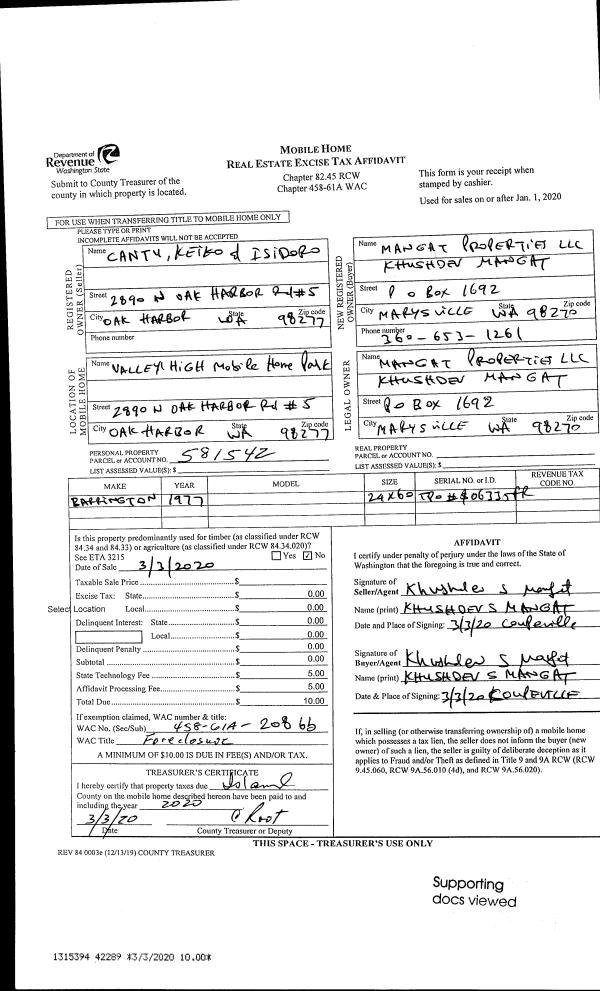 Department of
Revenue
Washington State
Submit to County Treasurer of the
county in which property is located.
MOBILE HOME
REAL ESTATE EXCISE TAX AFFIDAVIT
Chapter 82.45 RCW
Chapter 458-61A WAC
This form is your receipt when
stamped by cashier.
Used for sales on or after Jan. 1, 2020
FOR USE WHEN TRANSFERRING TITLE TO MOBILE HOME ONLY
PLEASE TYPE OR PRINT
INCOMPLETE AFFIDAVITS WILL NOT BE ACCEPTED
REGISTERED
OWNER (Seller)
Name CANTU, KEIKO & ISIDORO
Street 2890 N OAK HARBOR Rd #5
City OAK HARBOR State WA Zip code 98277
Phone number
NEW REGISTERED
OWNER (Buyer)
Name MANGAT PROPERTIES LLC
KHUSHDEV MANGAT
Street P O BOX 1692
City MARYSVILLE State WA Zip code 98270
Phone number 360-653-1261
LOCATION OF
MOBILE HOME
Name VALLEY HIGH Mobile Home Park
Street 2890 N OAK HARBOR Rd #5
City OAK HARBOR State WA Zip code 98277
LEGAL OWNER
Name MANGAT PROPERTIES LLC
KHUSHDEV MANGAT
Street P O BOX 1692
City MARYSVILLE State WA Zip code 98270
PERSONAL PROPERTY
PARCEL or ACCOUNT NO. 581542
LIST ASSESSED VALUE(S): $
REAL PROPERTY
PARCEL or ACCOUNT NO.
LIST ASSESSED VALUE(S): $
MAKE YEAR MODEL SIZE SERIAL NO. or I.D. REVENUE TAX CODE NO.
BARRINGTON 1977 24X60
Is this property predominantly used for timber (as classified under RCW
84.34 and 84.33) or agriculture (as classified under RCW 84.34.020)?
See ETA 3215 Yes ✓ No
Date of Sale 3/3/2020
Taxable Sale Price $
Excise Tax: State $ 0.00
Select Location Local $ 0.00
Delinquent Interest: State $ 0.00
Local $ 0.00
Delinquent Penalty $ 0.00
Subtotal $ 0.00
State Technology Fee $ 5.00
Affidavit Processing Fee $ 5.00
Total Due $ 10.00
If exemption claimed, WAC number & title:
WAC No. (Sec/Sub) 458-61A-208 bb
WAC Title Foreclosure
A MINIMUM OF $10.00 IS DUE IN FEE(S) AND/OR TAX.
TREASURER'S CERTIFICATE
I hereby certify that property taxes due Island
County on the mobile home described hereon have been paid to and
including the year 2020
3/3/20 C Root
Date County Treasurer or Deputy
AFFIDAVIT
I certify under penalty of perjury under the laws of the State of
Washington that the foregoing is true and correct.
Signature of
Seller/Agent Khushdev S Mangat
Name (print) KHUSHDEV S MANGAT
Date and Place of Signing: 3/3/20 Coupeville
Signature of
Buyer/Agent Khushdev S Mangat
Name (print) KHUSHDEV S MANGAT
Date & Place of Signing: 3/3/20 COUPEVILLE
If, in selling (or otherwise transferring ownership of) a mobile home
which possesses a tax lien, the seller does not inform the buyer (new
owner) of such a lien, the seller is guilty of deliberate deception as it
applies to Fraud and/or Theft as defined in Title 9 and 9A RCW (RCW
9.45.060, RCW 9A.56.010 (4d), and RCW 9A.56.020).
THIS SPACE - TREASURER'S USE ONLY
REV 84 0003e (12/13/19) COUNTY TREASURER
Supporting
docs viewed
1315394 42289 *3/3/2020 10.00*